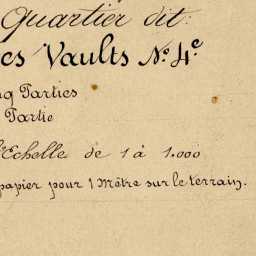 Quartier dit:
es Vaults No. 4e
q Parties
Partie
Echelle de 1 à 1.000
papier pour 1 Mètre sur le terrain.